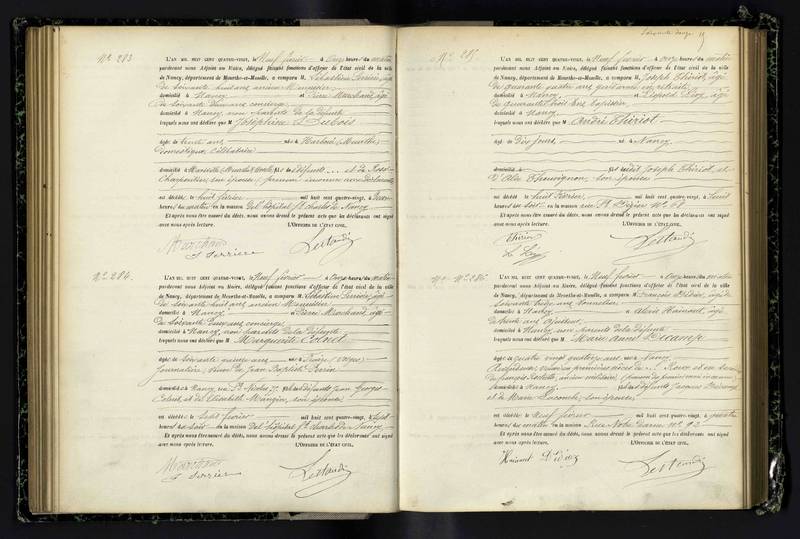 Nº 283
L'AN MIL HUIT CENT QUATRE-VINGT, le Neuf février à Onze heures du matin
pardevant nous Adjoint au Maire, délégué faisant fonctions d'officier de l'état civil de la ville
de Nancy, département de Meurthe-et-Moselle, a comparu M. Sébastien Ferrière, âgé
de soixante huit ans ancien Menuisier
domicilié à Nancy et Pierre Marchand, âgé
de soixante deux ans concierge
domicilié à Nancy, non parents de la défunte
lesquels nous ont déclaré que M Joséphine Dubois
âgée de trente ans née à Harboué (Meurthe)
domestique, célibataire
domiciliée à Maxéville, Meurthe & Moselle, fille de défunts ... et de Rose
Charpentier, son épouse,
est décédée le huit février mil huit cent quatre-vingt, à
heures du matin en la maison de l'hôpital St Charles de Nancy
Et après nous être assuré du décès, nous avons dressé le présent acte que les déclarants ont signé
avec nous après lecture. L'OFFICIER DE L'ÉTAT CIVIL,
Marchand
S Ferrière
Nº 284.
L'AN MIL HUIT CENT QUATRE-VINGT, le Neuf février à Onze heures du matin
pardevant nous Adjoint au Maire, délégué faisant fonctions d'officier de l'état civil de la ville
de Nancy, département de Meurthe-et-Moselle, a comparu M. Sébastien Ferrière, âgé
de soixante huit ans ancien Menuisier
domicilié à Nancy et Pierre Marchand, âgé
de soixante deux ans concierge
domicilié à Nancy, non parents de la défunte
lesquels nous ont déclaré que M Marguerite Colnet
âgée de soixante quinze ans née à (Vosges)
Journalière, veuve de Jean Baptiste Perrin
domiciliée à Nancy, rue St Nicolas fille des défunts Jean Georges
Colnet, et de Elisabeth Mangin, son épouse
est décédée le sept février mil huit cent quatre-vingt, à sept
heures du soir en la maison de l'hôpital St Charles de Nancy
Et après nous être assuré du décès, nous avons dressé le présent acte que les déclarants ont signé
avec nous après lecture. L'OFFICIER DE L'ÉTAT CIVIL,
Marchand
S Ferrière
Nº 285
L'AN MIL HUIT CENT QUATRE-VINGT, le Neuf février à onze heures du matin
pardevant nous Adjoint au Maire, délégué faisant fonctions d'officier de l'état civil de la ville
de Nancy, département de Meurthe-et-Moselle, a comparu M. Joseph Thiriot, âgé
de quarante quatre ans gendarme en retraite
domicilié à Nancy et Léopold âgé
de quarante huit ans tapissier
domicilié à Nancy
lesquels nous ont déclaré que M André Thiriot
âgé de Dix jours, né à Nancy,
domicilié à fils dudit Joseph Thiriot et
d' Thouvignon, son épouse
est décédé le huit février mil huit cent quatre-vingt, à huit
heures du soir en la maison rue St Dizier Nº 68
Et après nous être assuré du décès, nous avons dressé le présent acte que les déclarants ont signé
avec nous après lecture. L'OFFICIER DE L'ÉTAT CIVIL,
Thiriot
Nº 286
L'AN MIL HUIT CENT QUATRE-VINGT, le Neuf février à Onze heures du matin
pardevant nous Adjoint au Maire, délégué faisant fonctions d'officier de l'état civil de la ville
de Nancy, département de Meurthe-et-Moselle, a comparu M. François Didier, âgé de
soixante treize ans tonnelier
domicilié à Nancy et Hainaut, âgé
de trente ans
domicilié à Nancy, non parents de la défunte
lesquels nous ont déclaré que M Marie Anne Décamp
âgée de quatre vingt quatorze ans née à Nancy
veuve en premières noces de ... Roux et en secondes
de François
domiciliée à Nancy fille des défunts Jacques Décamp
et de Marie Lacombe, son épouse
est décédée le Neuf février mil huit cent quatre-vingt, à quatre
heures du matin en la maison Rue Notre Dame Nº 92
Et après nous être assuré du décès, nous avons dressé le présent acte que les déclarants ont signé
avec nous après lecture. L'OFFICIER DE L'ÉTAT CIVIL,
Hainaut Didier